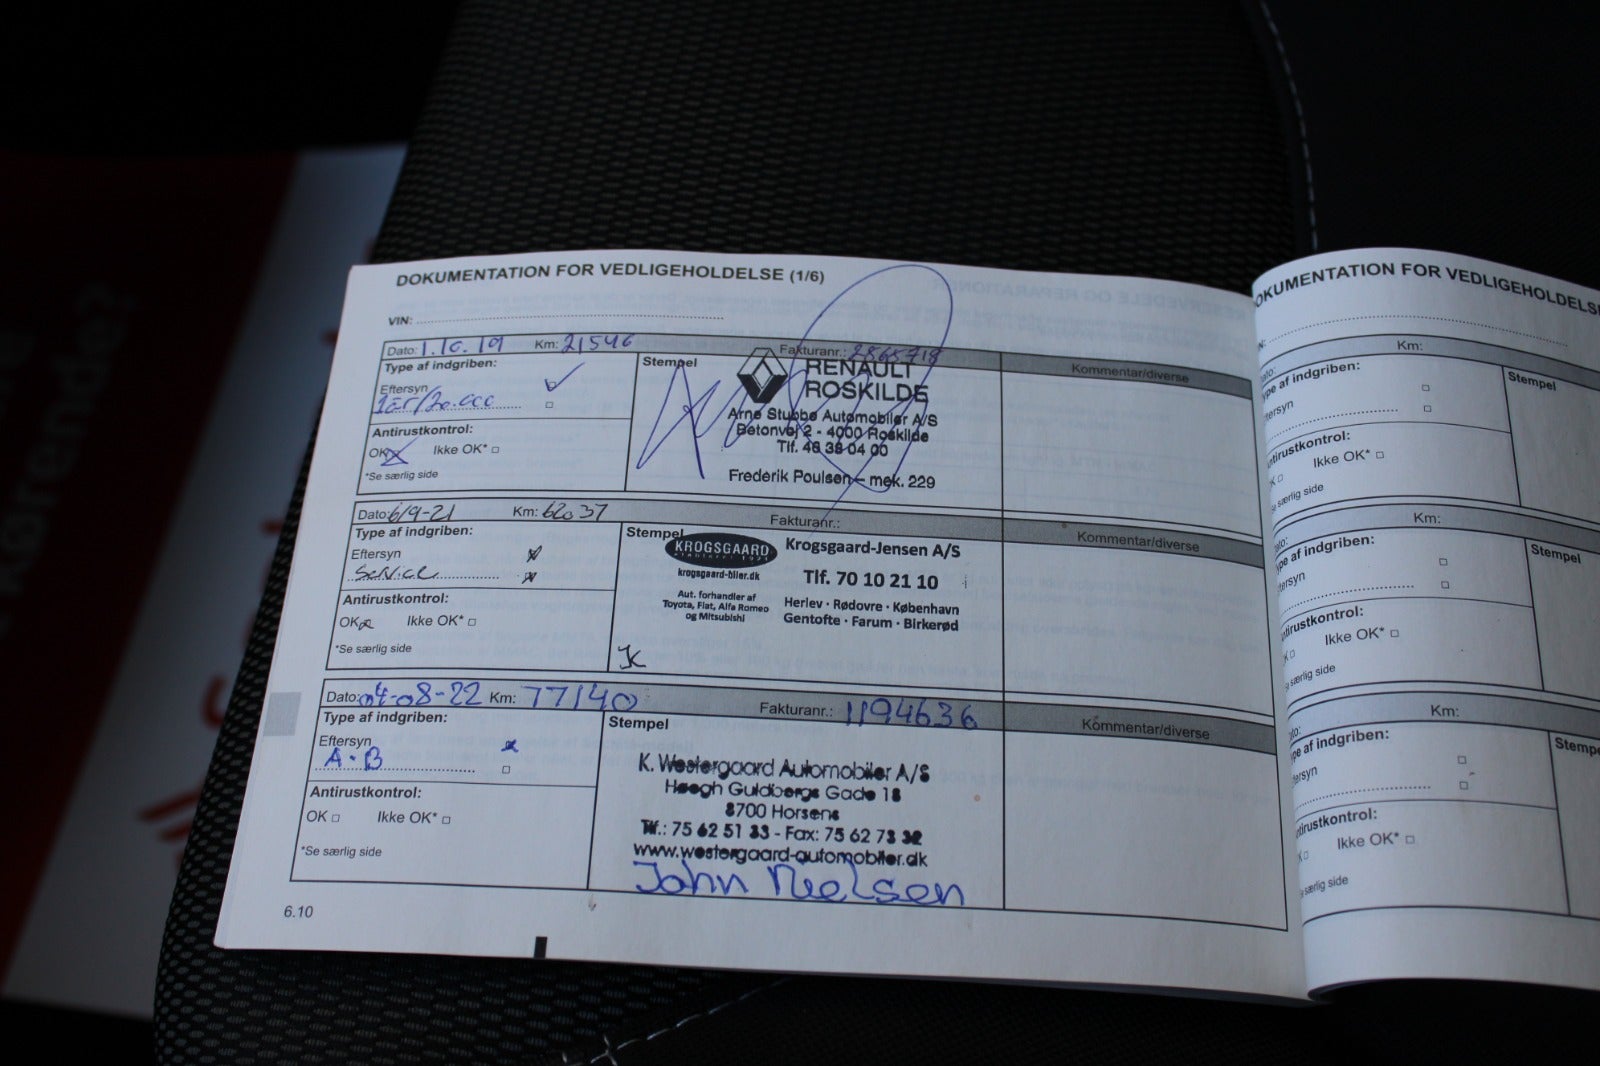 DOKUMENTATION FOR VEDLIGEHOLDELSE (1/6)
VIN:
Dato: 1.10.19 Km: 21546 Fakturanr.: 2865718
Type af indgriben:
Eftersyn
1år/30.000
Antirustkontrol:
OK Ikke OK*
*Se særlig side
Stempel
RENAULT
ROSKILDE
Arne Stubbe Automobiler A/S
Betonvej 2 - 4000 Roskilde
Tlf. 46 38 04 00
Frederik Poulsen - mek. 229
Kommentar/diverse
Dato: 6/9-21 Km: 62037 Fakturanr.:
Type af indgriben:
Eftersyn
Service
Antirustkontrol:
OK Ikke OK*
*Se særlig side
Stempel
KROGSGAARD
krogsgaard-biler.dk
Aut. forhandler af
Toyota, Fiat, Alfa Romeo
og Mitsubishi
Krogsgaard-Jensen A/S
Tlf. 70 10 21 10
Herlev · Rødovre · København
Gentofte · Farum · Birkerød
JK
Kommentar/diverse
Dato: 04-08-22 Km: 77140 Fakturanr.: 1194636
Type af indgriben:
Eftersyn
A·B
Antirustkontrol:
OK Ikke OK*
*Se særlig side
Stempel
K. Westergaard Automobiler A/S
Høegh Guldbergs Gade 18
8700 Horsens
Tlf.: 75 62 51 33 - Fax: 75 62 73 32
www.westergaard-automobiler.dk
John Nielsen
Kommentar/diverse
6.10
OKUMENTATION FOR VEDLIGEHOLDELSE
Km:
ype af indgriben:
tersyn
ntirustkontrol:
Ikke OK*
e særlig side
Stempel
Km:
ype af indgriben:
tersyn
ntirustkontrol:
Ikke OK*
e særlig side
Stempel
Km:
ype af indgriben:
tersyn
ntirustkontrol:
Ikke OK*
e særlig side
Stempe
kørende?